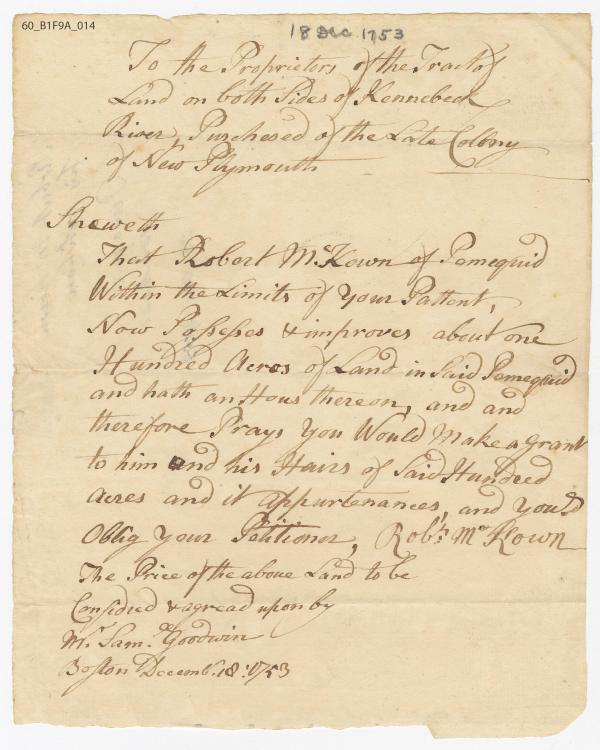 60_B1F9A_014
18 Dec. 1753
To the Proprietors of the Tract of
Land on both Sides of Kennebeck
River, Purchesed of the Late Collony
of New Plymouth
Sheweth
That Robert McKown of Pemequid
Within the Limits of your Pattent,
Now Possesses & improves about one
Hundred Acres of Land in Said Pemequid
and hath an Hous thereon, and and
therefore Prays You Would Make a grant
to him and his Hairs of Said Hundred
acres and it appurtenances, and you'd
Oblig your Petitioner, Robt. Mc Kown
The Price of the above Land to be
Considred & agread upon by
Mr. Sam. Goodwin
Boston Decemb. 18: 1753